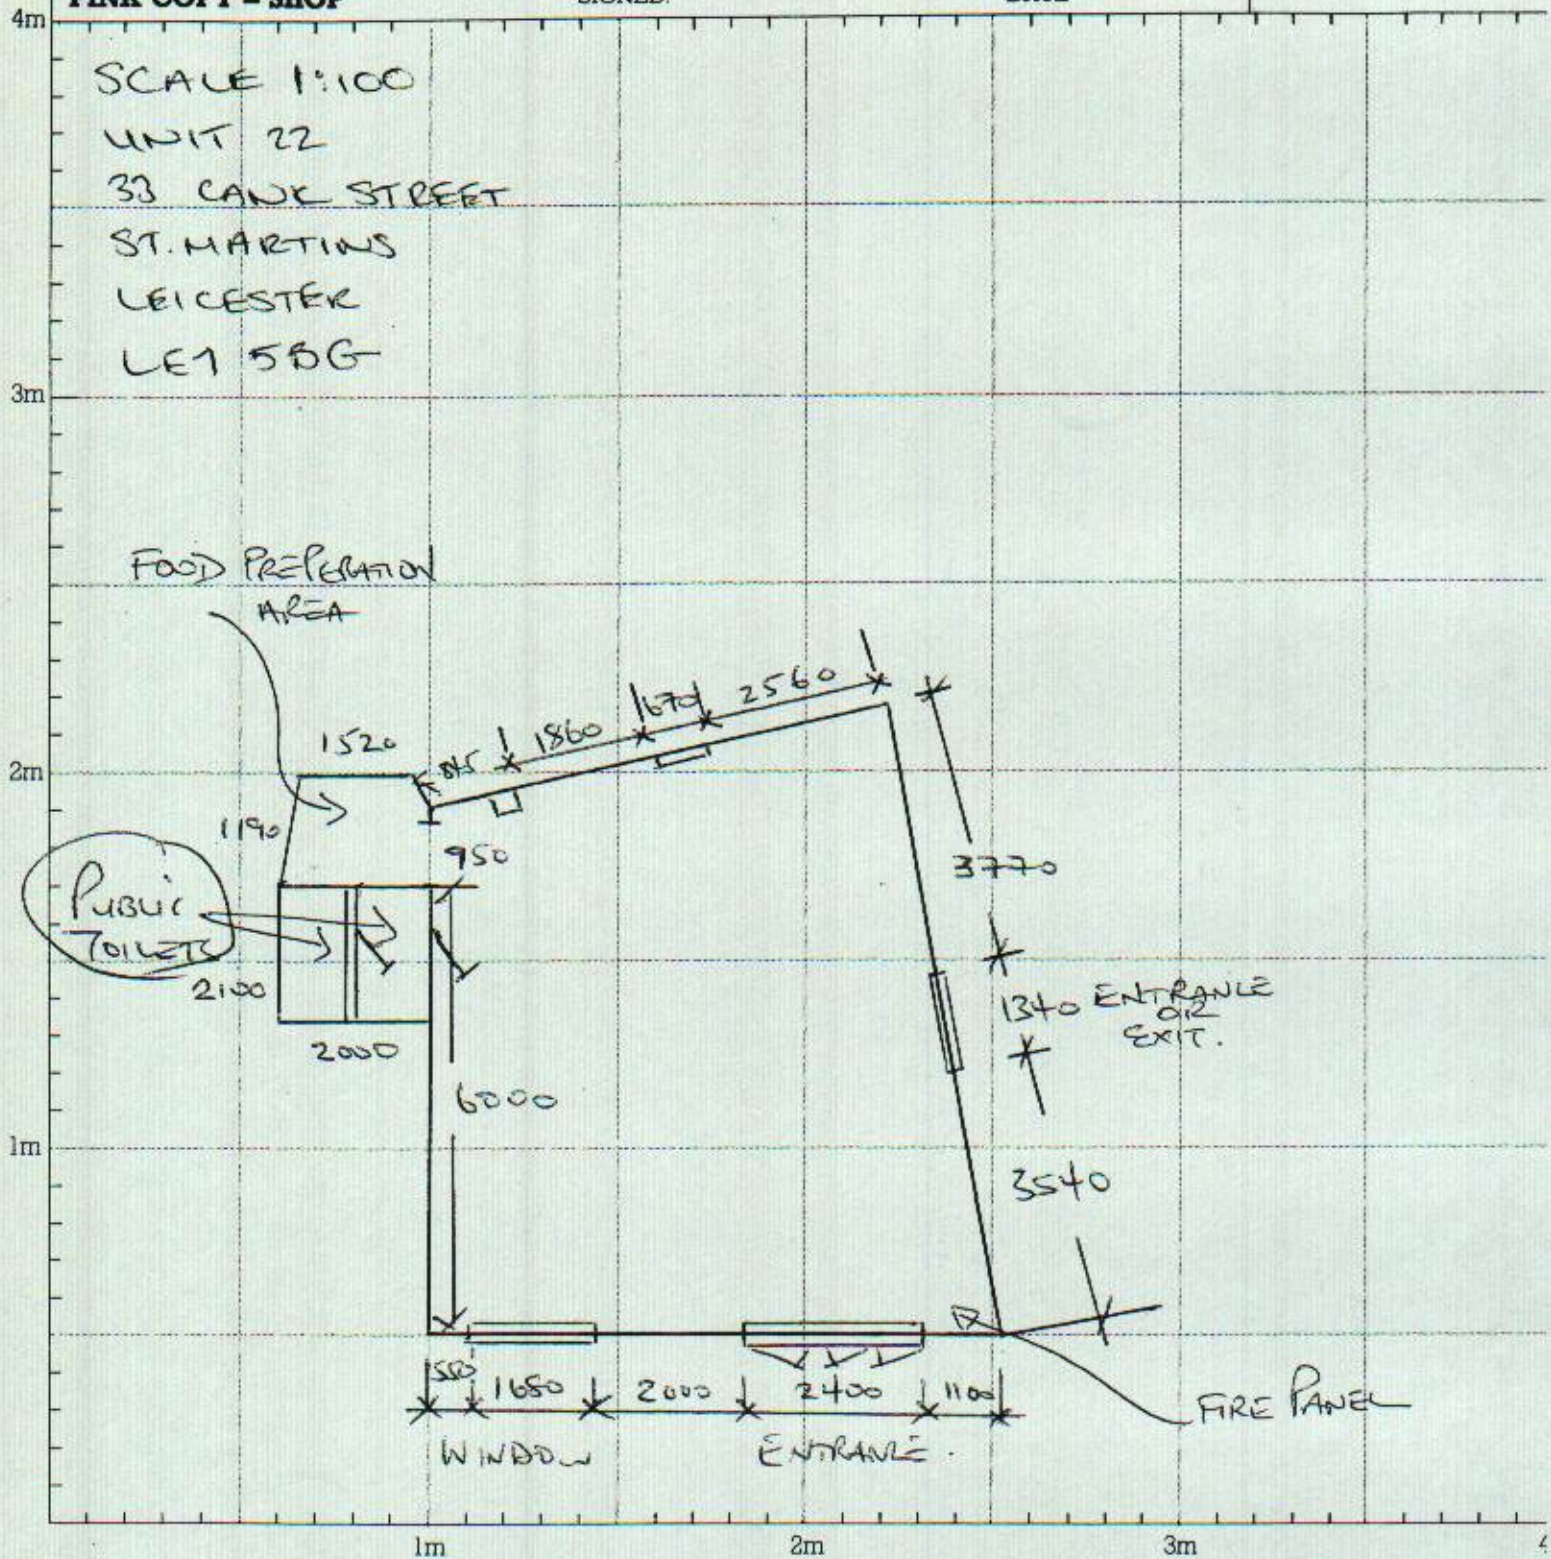 PINK COPY – SHOP
SIGNED:
4m
SCALE 1:100
UNIT 22
33 CANK STREET
ST. MARTINS
LEICESTER
LE1 5BG
3m
FOOD PREPERATION
AREA
1520
845
1860
670
2560
2m
1190
950
3770
PUBLIC
TOILETS
2100
2000
1340 ENTRANCE
OR
EXIT.
6000
1m
3540
550
1650
2000
2400
1100
FIRE PANEL
WINDOW
ENTRANCE.
1m
2m
3m
4